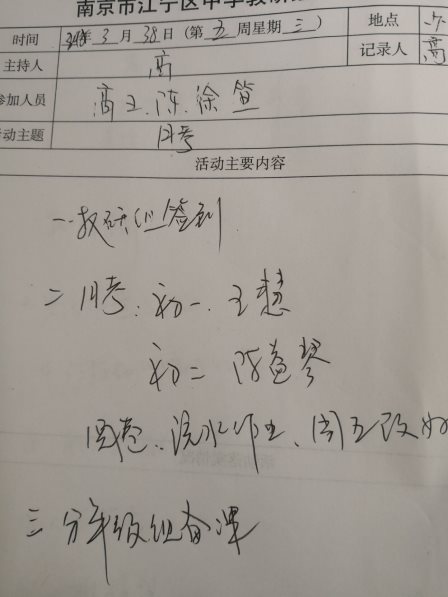 南京市江宁区中学教研
时间 年 3 月 日 (第 五 周星期 三) 地点
主持人 高 记录人 高
参加人员 高 王、陈、徐
活动主题 月考
活动主要内容
一 教研组签到
二 月考: 初一、王慧
初二 陈 琴
阅卷、流水作业、周五改好
三 分年级组备课